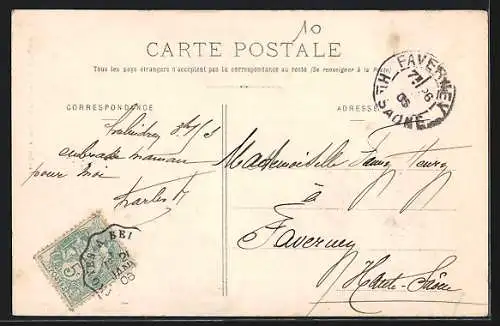 10
CARTE POSTALE
Tous les pays étrangers n'acceptent pas la correspondance au recto (Se renseigner à la Poste)
CORRESPONDANCE
ADRESSE
FAVERNEY
Hte SAÔNE
05
embrasse maman
pour moi
Charles
Mademoiselle
à
Faverney
Haute-Saône
5
05